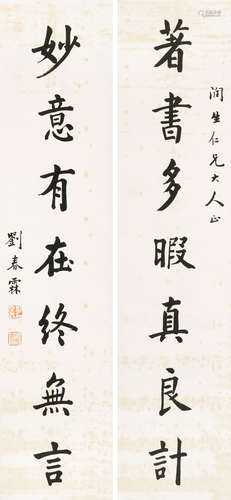 润生仁兄大人正
著書多暇真良計
妙意有在終無言
劉春霖